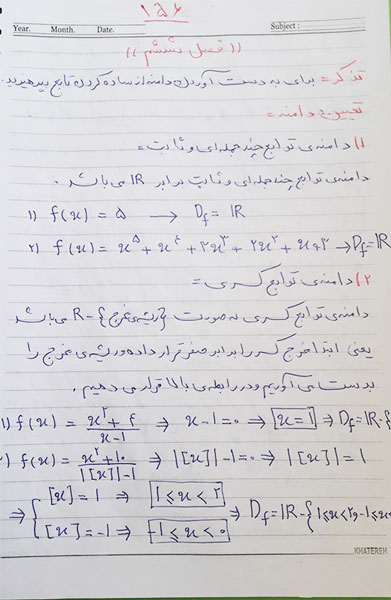 ۱۵۶
Year. Month. Date. Subject :
(( فصل ششم ))
تذکر = برای به دست آوردن دامنه از ساده کردن تابع بپرهیزید.
تعیین دامنه =
۱) دامنه ی توابع چند جمله ای و ثابت =
دامنه ی توابع چند جمله ای و ثابت برابر IR می باشد .
۱) f(x) = ۵ → Df = IR
۲) f(x) = x⁵ + x⁴ + ۳x³ + ۲x² + x + ۳ → Df = IR
۲) دامنه ی توابع کسری =
دامنه ی توابع کسری به صورت {ریشه ی مخرج} - R می باشد
یعنی ابتدا مخرج کسر را برابر صفر قرار داده و ریشه ی مخرج را
بدست می آوریم و در رابطه ی بالا قرار می دهیم .
۱) f(x) = (x² + ۴)/(x - ۱) ⇒ x - ۱ = ۰ ⇒ x = ۱ ⇒ Df = IR - {
۲) f(x) = (x² + ۱۰)/(|[x]| - ۱) ⇒ |[x]| - ۱ = ۰ ⇒ |[x]| = ۱
⇒ { [x] = ۱ ⇒ ۱ ≤ x < ۲ ⇒ Df = IR - { ۱ ≤ x < ۲ و -۱ ≤ x < ۰
[x] = -۱ ⇒ -۱ ≤ x < ۰
KHATEREH